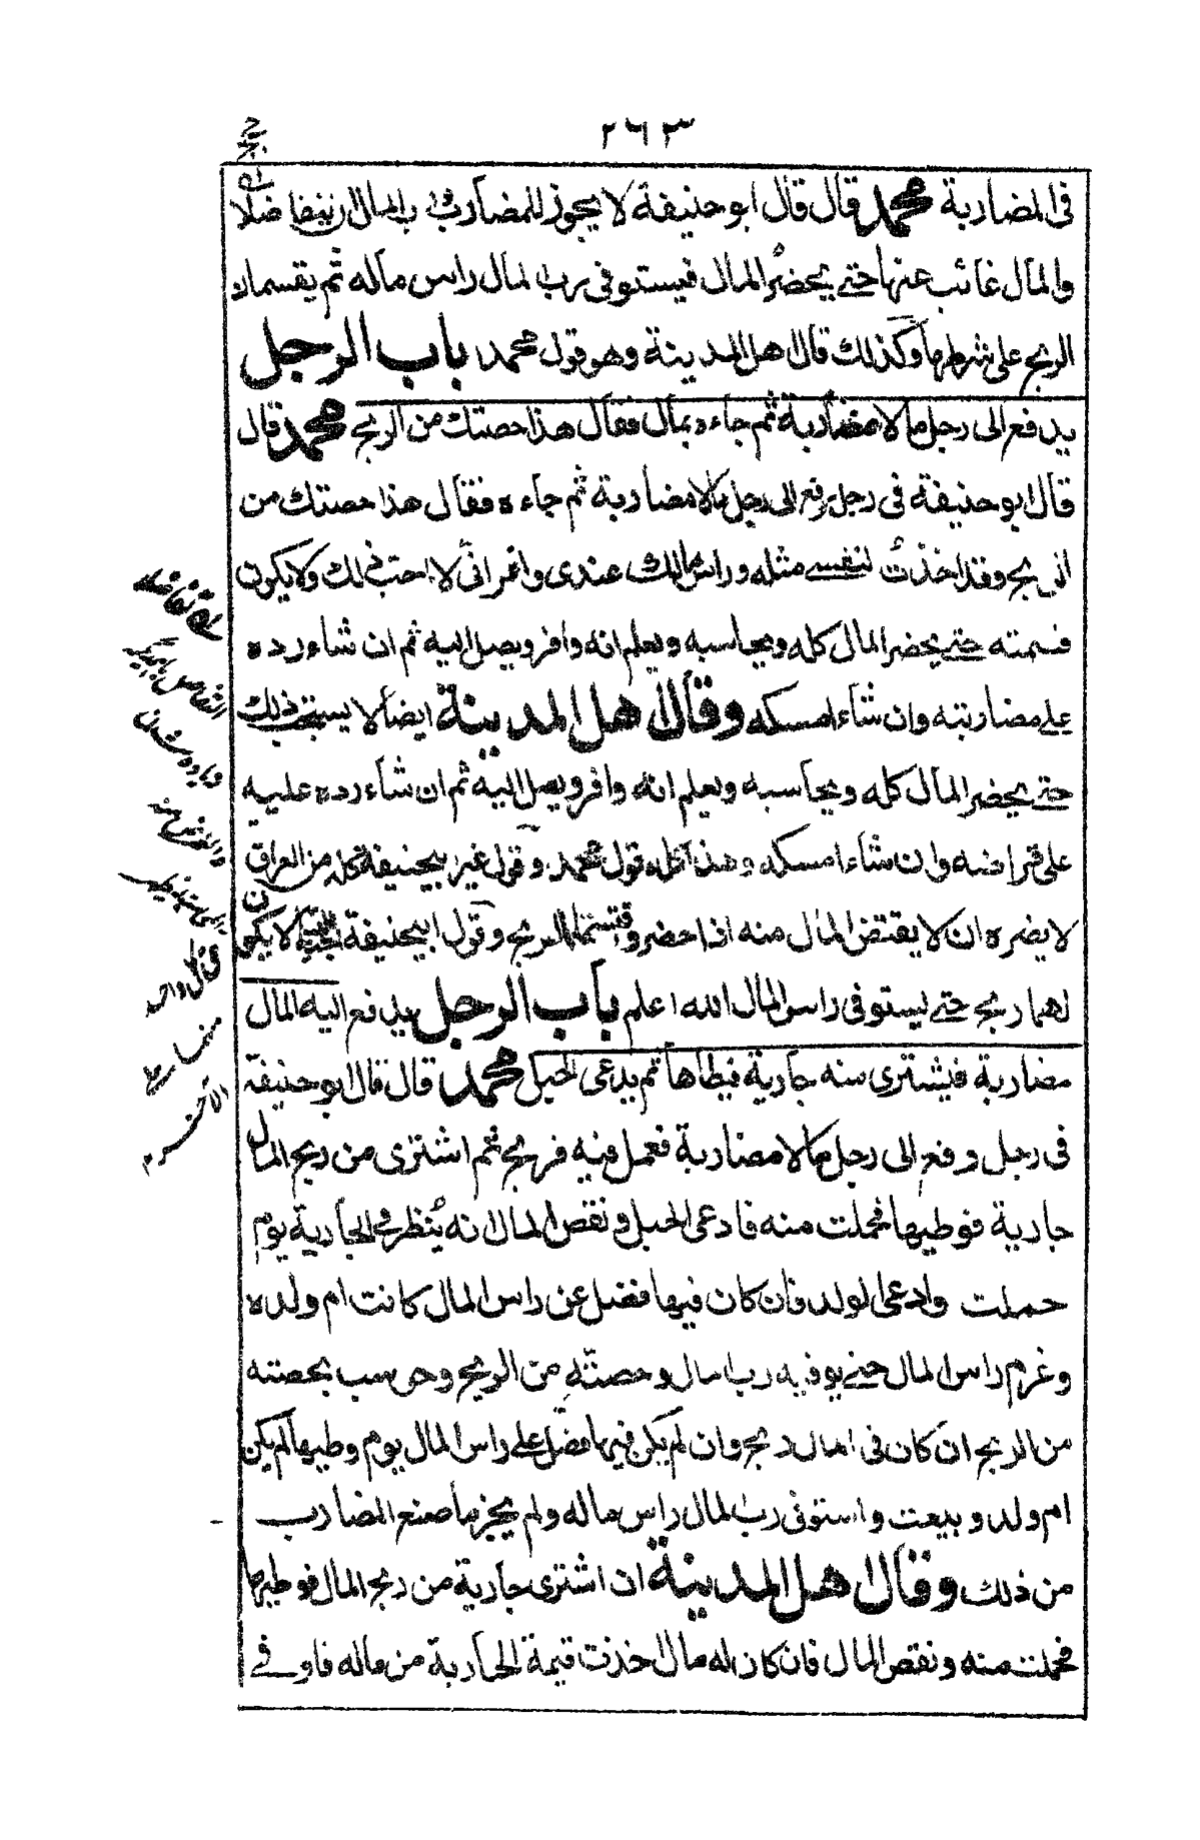 ٢٦٣
فى المضاربة محمد قال قال ابو حنيفة لا يجوز للمضارب ورب المال ان يتفاضلا
والمال غائب عنها حتى يحضر المال فيستوفى رب المال راس ماله ثم يقسمان
الربح على شرطهما وكذلك قال اهل المدينة وهو قول محمد باب الرجل
يدفع الى رجل مالا مضاربة ثم جاءه بمال فقال هذا حصتك من الربح محمد قال
قال ابو حنيفة فى رجل دفع الى رجل مالا مضاربة ثم جاءه فقال هذا حصتك من
الربح وقد اخذت لنفسى مثله وراس مالك عندى وافر انى لا احب ذلك ولا يكون
قسمته حتى يحضر المال كله ويحاسبه ويعلم انه وافر ويصل اليه ثم ان شاء رده
على مضاربته وان شاء امسكه وقال اهل المدينة ايضا لا يستحب ذلك
حتى يحضر المال كله ويحاسبه ويعلم انه وافر ويصل اليه ثم ان شاء رده عليه
على قراضه وان شاء امسكه وهذا كله قول محمد وقول غير ابيحنيفة كله من العراق
لا يضره ان لا يقتض المال منه اذا حضر واقتسما الربح وقول ابيحنيفة لا يكون
لهما ربح حتى يستوفى راس المال الله اعلم باب الرجل يدفع اليه المال
مضاربة فيشترى منه جارية فيطاها ثم يدعى الحبل محمد قال قال ابو حنيفة
فى رجل دفع الى رجل مالا مضاربة فعمل فيه فربح ثم اشترى من ربح المال
جارية فوطيها فحملت منه فادعى الحبل ونقص المال انه يُنظر فى الجارية يوم
حملت وادعى الولد فان كان فيها فضل عن راس المال كانت ام ولده
وغرم راس المال حتى يوفيه رب المال وحصته من الربح وحوسب بحصته
من الربح ان كان فى المال ربح وان لم يكن فيها فضل على راس المال يوم وطيها لم يكن
ام ولد وبيعت واستوفى رب المال راس ماله ولم يجز ما صنع المضارب
من ذلك وقال اهل المدينة ان اشترى جارية من ربح المال فوطيها
فحملت منه ونقص المال فان كان له مال اخذت قيمة الجارية من ماله فاوفى